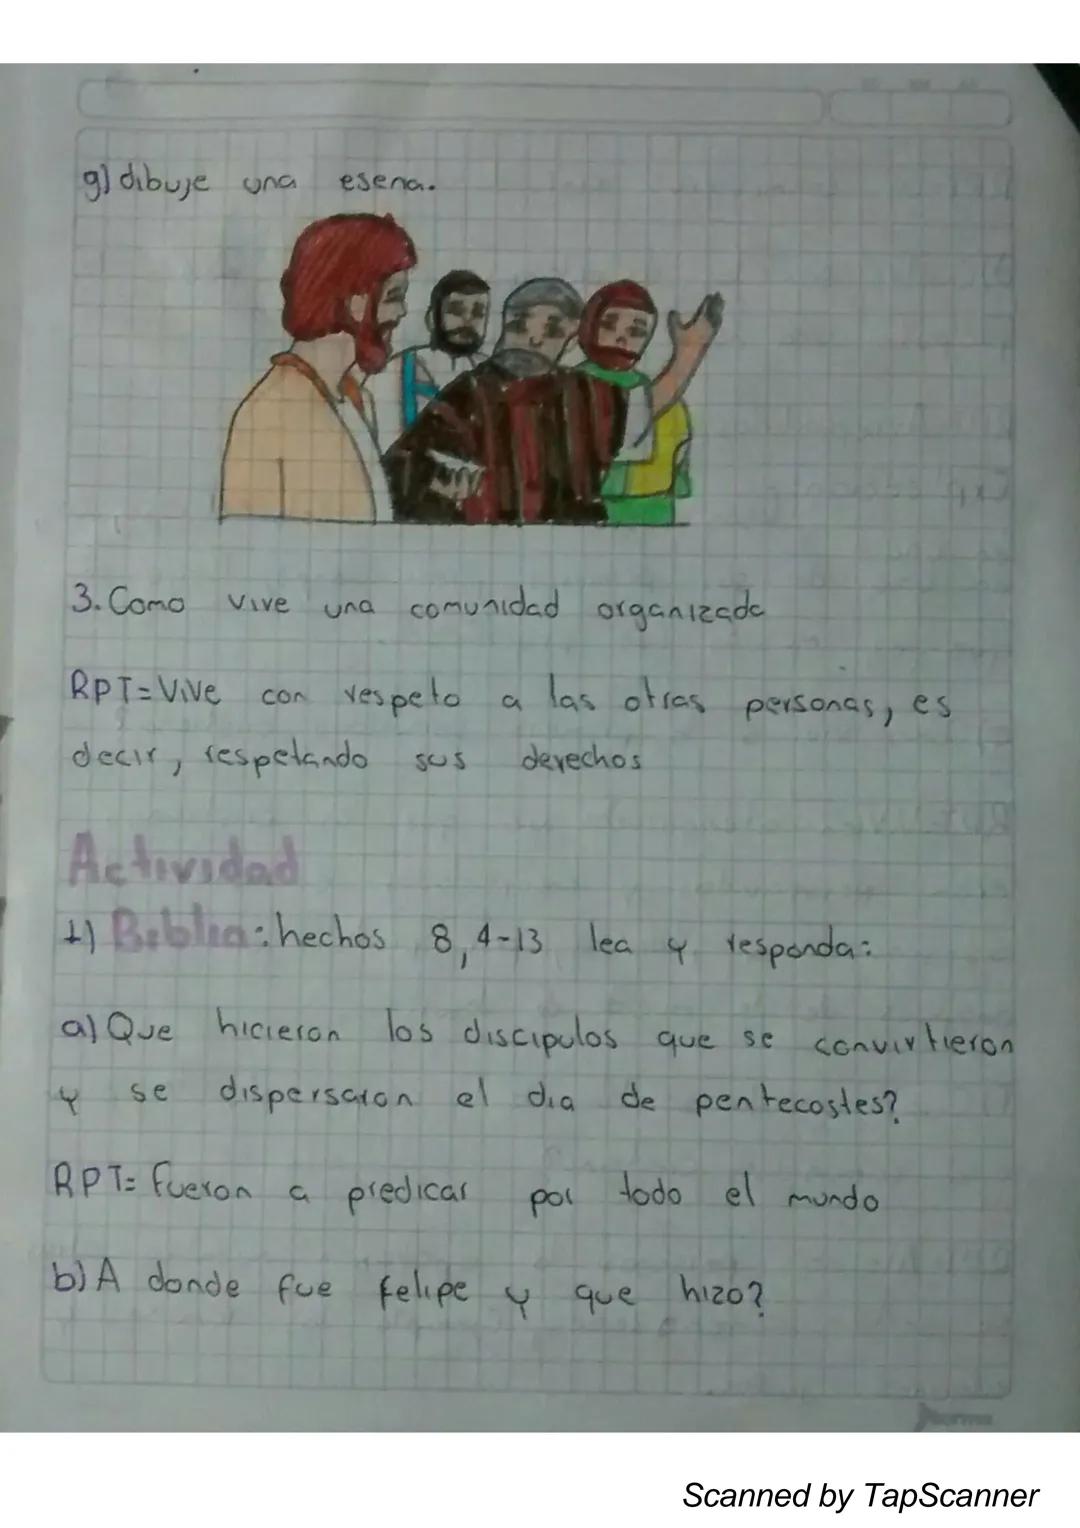 g) dibuje una esena.
3. Como vive una comunidad organizada
RPT= Vive con respeto a las otras personas, es
decir, respetando sus derechos
Actividad
1) Biblia: hechos 8,4-13 lea y responda:
a) Que hicieron los discipulos que se convirtieron
y se dispersaron el dia de pentecostes?
RPT= fueron a predicar por todo el mundo
b) A donde fue felipe y que hizo?
norma
Scanned by TapScanner